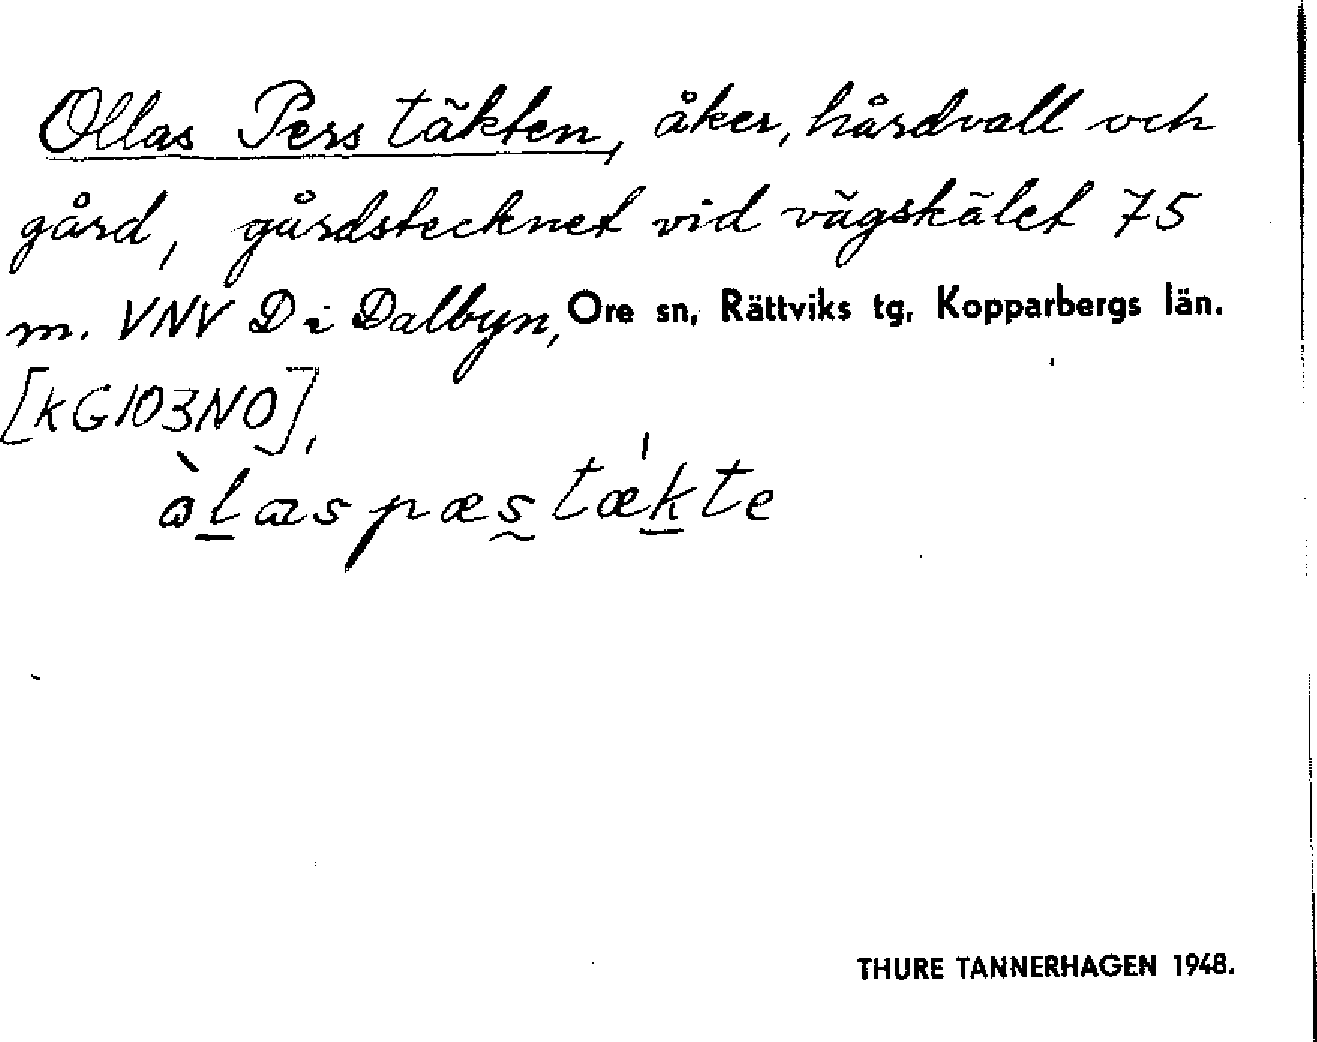 Ollas Pers täkten, åker, hårdvall och
gård, gårdstecknet vid vägskälet 75
m. VNV D i Dalbyn, Ore sn, Rättviks tg, Kopparbergs län.
[KG103NO],
òlas pæs tækte
THURE TANNERHAGEN 1948.